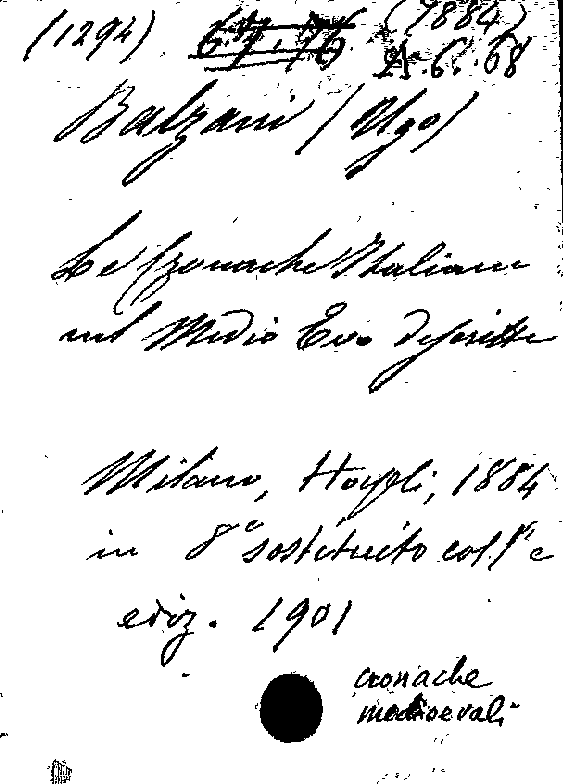 (1294) (7884)
A. 6. 68
Balzani (Ugo)
Le Cronache Italiane
nel Medio Evo descritte
Milano, Hoepli, 1884
in 8° sostituito coll'e
ediz. 1901
cronache
medioevali